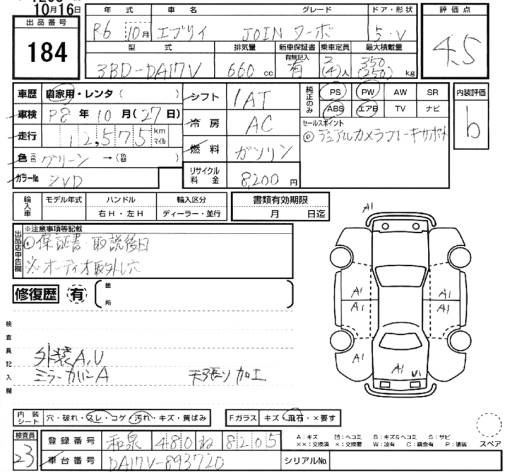 10月16日
出品番号
184
年式 車名 グレード ドア・形状
R6 10月 エブリイ JOINターボ 5・V
型式 排気量 新車保証書 有無記入 乗車定員 最大積載量
3BD-DA17V 660cc 有 2(4)人 350(250)kg
評価点
4.5
車歴 自家用・レンタ( )
車検 R8年10月(27)日
走行 12,575 km マイル
色 グリーン→
カラーNo. ZVD
シフト IAT
冷房 AC
燃料 ガソリン
リサイクル料金 8,200円
純正のみ
PS PW AW SR
ABS エアB TV ナビ
セールスポイント
◎デュアルカメラブレーキサポート
内装評価
b
輸入車 モデル年式 ハンドル 輸入区分
右H・左H ディーラー・並行
書類有効期限
月 日迄
出品店申告欄
※注意事項等記載
◎保証書 取説後日
※オーディオ取外し穴
修復歴 有 箇所
検査員記入欄
外装A,U
ミラーカバーA 天張り加工
A1
A1 A1 A1 A1
A1 U1
内装シート 穴・破れ・スレ・コゲ・汚れ・キズ・黄ばみ Fガラス キズ・飛石・×要す
A:キズ U:ヘコミ B:キズ&ヘコミ S:サビ
××:交換済 ×:交換要 W:波有 C:腐食有 P:塗装
スペア
検査員
23
登録番号 和泉 480 ね 8205
車台番号 DA17V-893720 シリアルNo.